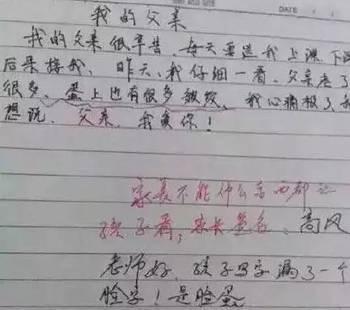 我的父亲
我的父亲很辛苦、每天要送我上课、下课
后来接我、昨天、我仔细一看、父亲老了
很多、蛋上也有很多皱纹、我心痛极了、我
想说、父亲、我爱你!
家长不能什么东西都让
孩子看,家长签名、高风
老师好、孩子写字漏了一个
脸字!是脸蛋